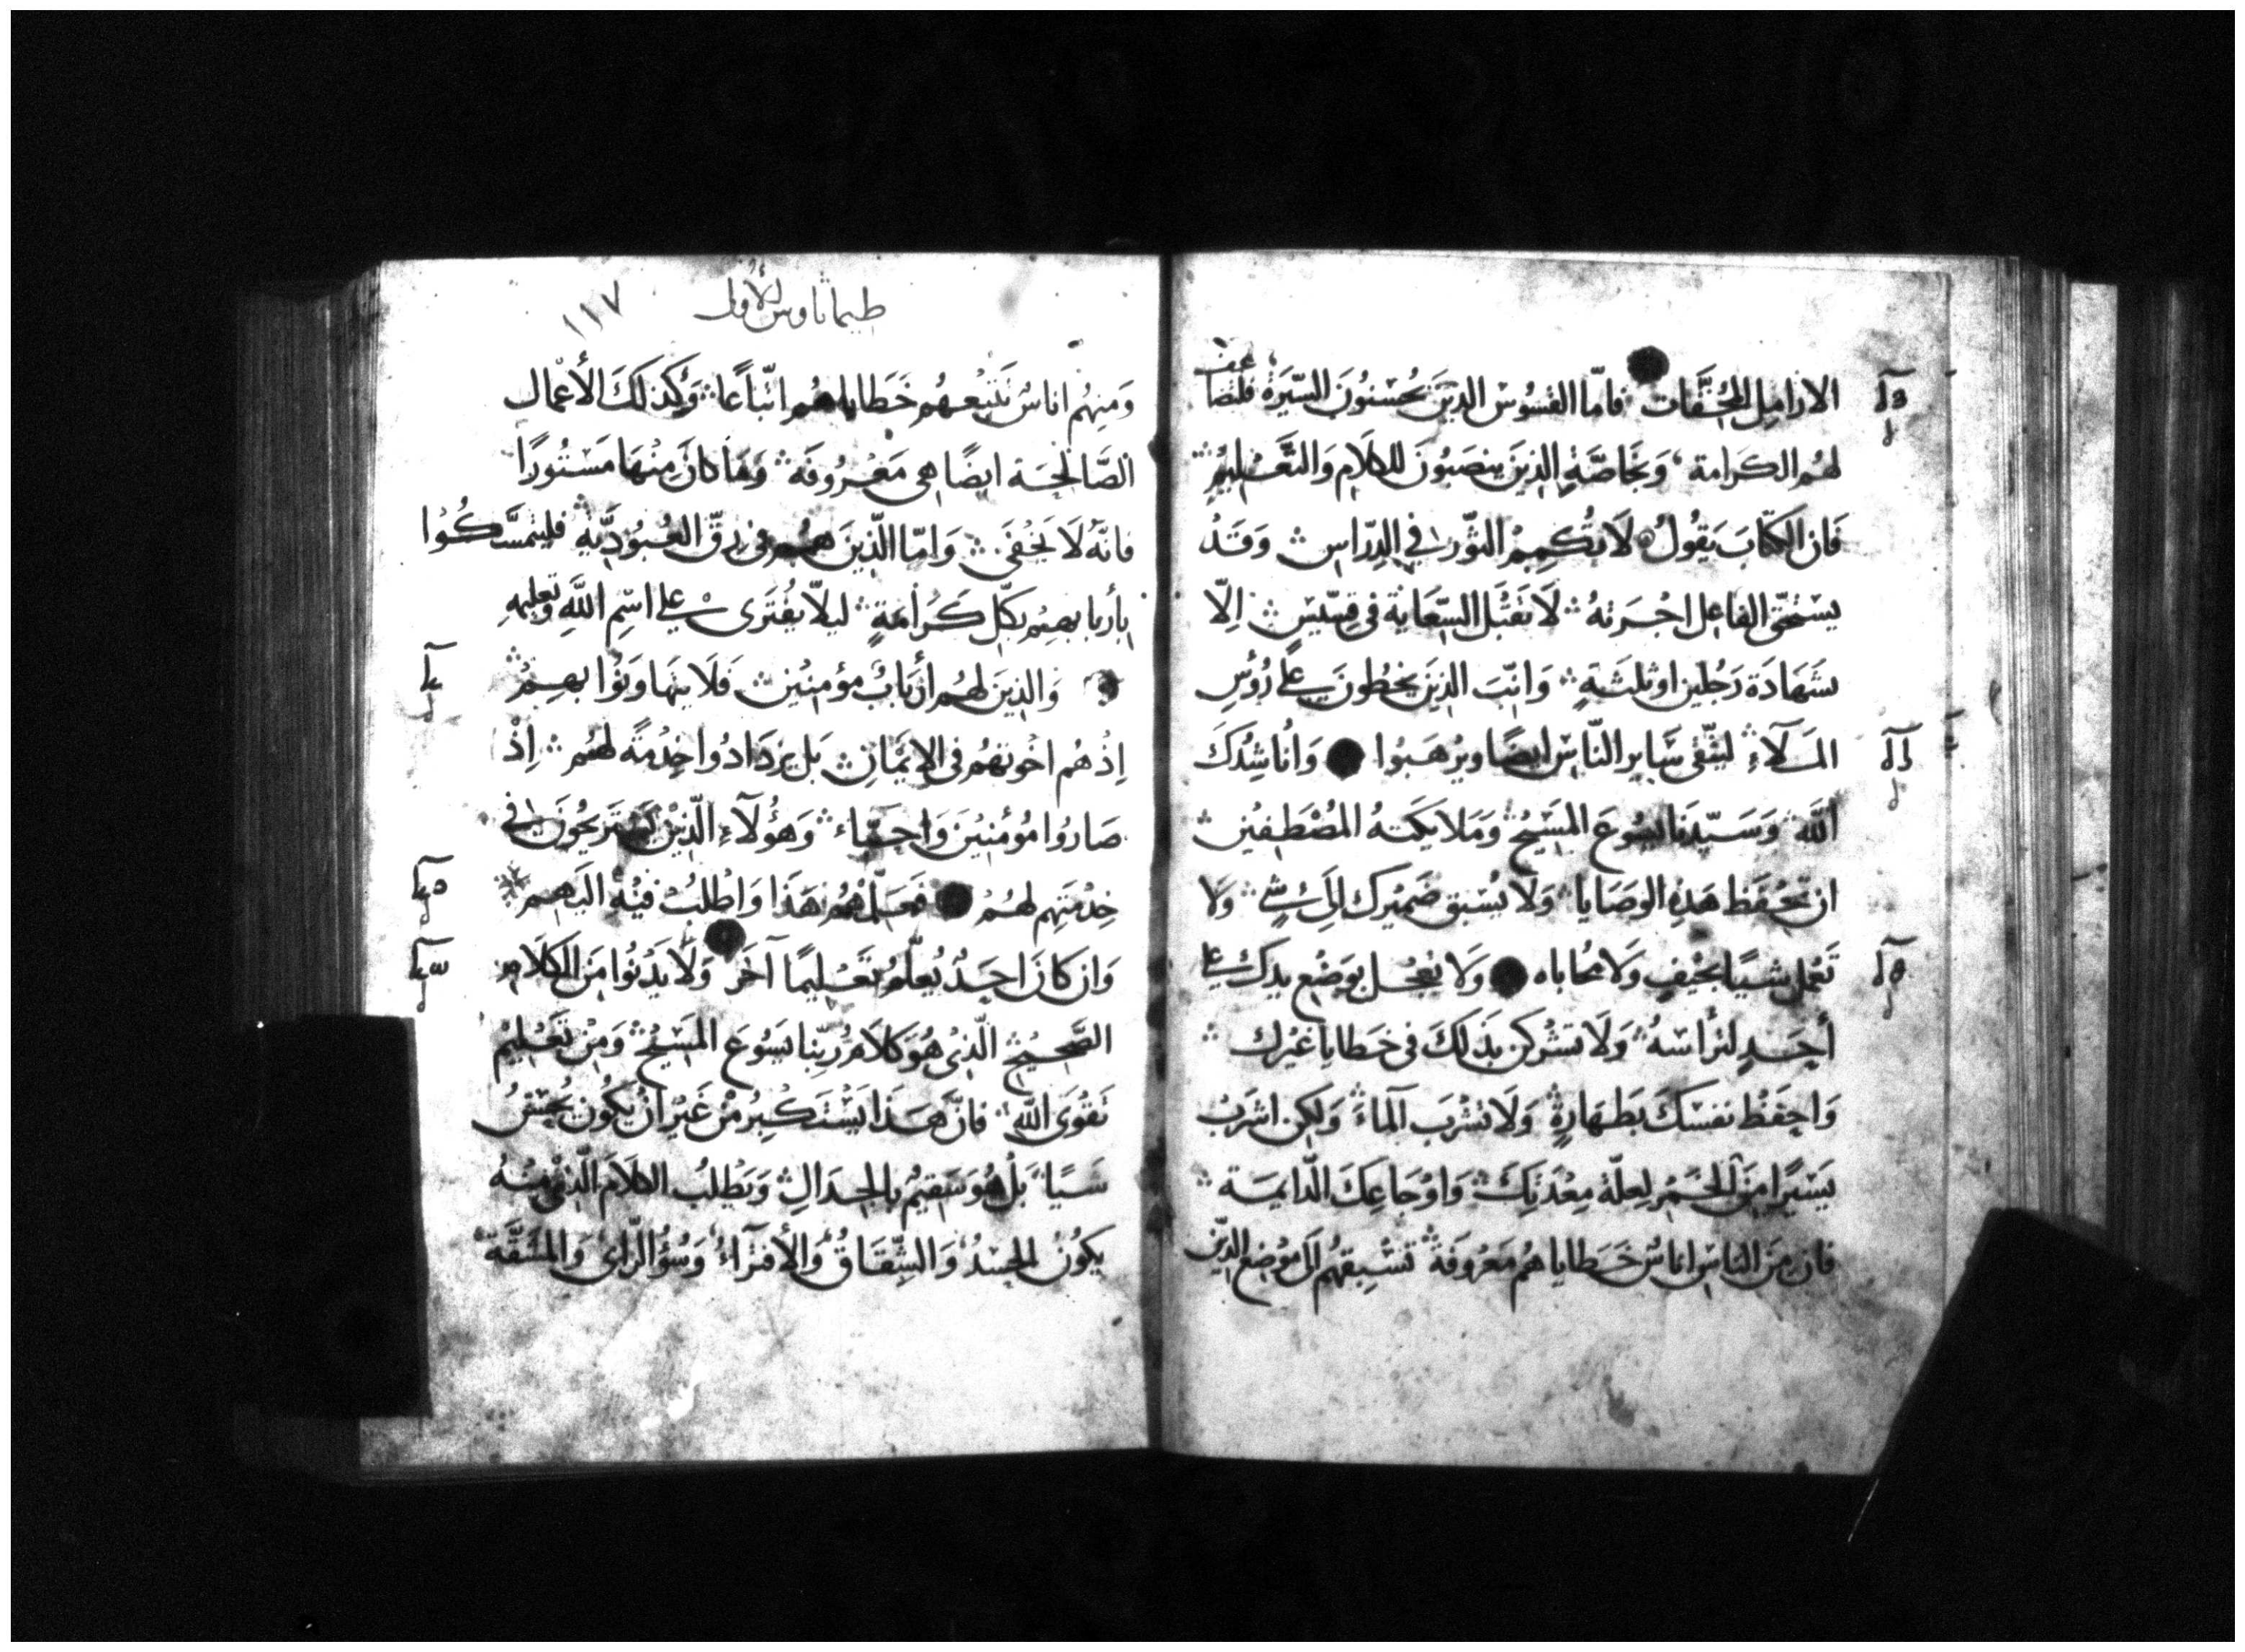 الارامل المحقات فامّا القسوس الذين يحسنون السّيرة فلتضاعف
لهم الكرامة وبخاصّة الذين ينصبون للكلام والتّعليم
فان الكتاب يقول لا تُكمم الثّور في الدّراس وقد
يستحقّ الفاعل اجرته لا تقبل السّعاية في قسّيس الّا
بشهادة رجلين او ثلثة وانّب الذين يخطون على رؤس
الملآء ليتّقي سَاير النّاس ايضا ويرهبوا وانا شدك
اللّه وسيّدنا يسوع المسيح وملايكته المصطفين
ان تحفظ هذه الوصايا ولا يسبق ضميرك الى شي ولا
تعمل شيئا بحيف ولا محاباه ولا تعجل بوضع يدك على
أحد لترأسه ولا تشركن بذلك في خطايا غيرك
واحفظ نفسك بطهارة ولا تشرب المآء ولكن اشرب
يسيرا من الخمر لعلّة معدتك واوجاعك الدّايمة
فان من الناس اناس خطاياهم معروفة تسبقهم الى موضع الدّين
طيماثاوس الأول
١١٧
ومنهم اناس تتبعهم خطاياهم اتّباعا وكذلك الأعمال
الصّالحة ايضا هى معروفة وما كان منها مستورا
فانّه لا يخفى وامّا الّذين هم في رقّ العبوديّة فليتمسّكوا
بأربابهم بكلّ كرامة ليلّا يفترى على اسم اللّه وتعليمه
والذين لهم أرباب مؤمنين فلا يتهاونوا بهم
اذ هم اخوتهم في الايمان بل يزدادوا خدمة لهم اذ
صاروا مؤمنين واحبّاء وهؤلآء الّذين يستريحون في
خدمتهم لهم فعلّمهم هذا واطلب فيه اليهم
وان كان احد يُعلّم تعليما آخر ولا يدنوا من الكلام
الصّحيح الّذي هو كلام ربّنا يسوع المسيح ومن تعليم
تقوى اللّه فانّ هذا يستكبر من غير ان يكون يحسن
شيئا بل هو سقيم بالجدال ويطلب الكلام الّذي منه
يكون الحسد والشّقاق والأفترآء وسُوء الرّاى والمشقّة